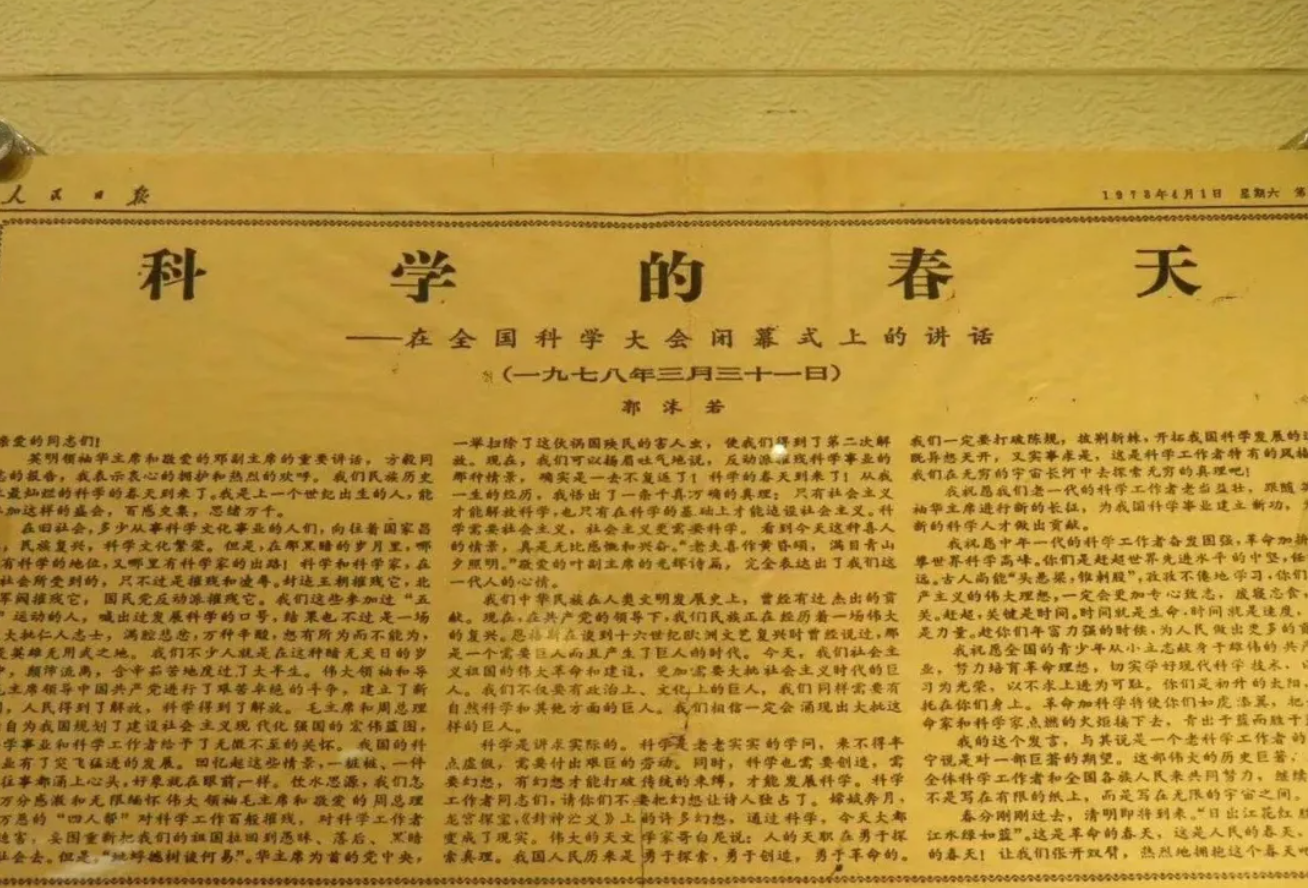 人民日报
1978年4月1日 星期六 第
科学的春天
——在全国科学大会闭幕式上的讲话
(一九七八年三月三十一日)
郭沫若
亲爱的同志们!
英明领袖华主席和敬爱的邓副主席的重要讲话,方毅同
志的报告,我表示衷心的拥护和热烈的欢呼。我们民族历史
上最灿烂的科学的春天到来了。我是上一个世纪出生的人,能
加这样的盛会,百感交集,思绪万千。
在旧社会,多少从事科学文化事业的人们,向往着国家昌
,民族复兴,科学文化繁荣。但是,在那黑暗的岁月里,哪
有科学的地位,又哪里有科学家的出路!科学和科学家,在
社会所受到的,只不过是摧残和凌辱。封建王朝摧残它,北
军阀摧残它,国民党反动派摧残它。我们这些参加过“五
”运动的人,喊出过发展科学的口号,结果也不过是一场
大批仁人志士,满腔悲愤,万种辛酸,想有所为而不能为,
是英雄无用武之地。我们不少人就是在这种暗无天日的岁
中,颠沛流离,含辛茹苦地度过了大半生。伟大领袖和导
毛主席领导中国共产党进行了艰苦卓绝的斗争,建立了新
,人民得到了解放,科学得到了解放。毛主席和周总理
自为我国规划了建设社会主义现代化强国的宏伟蓝图,
学事业和科学工作者给予了无微不至的关怀。我国的科
业有了突飞猛进的发展。回忆起这些情景,一桩桩、一件
往事都涌上心头,好象就在眼前一样。饮水思源,我们怎
万分感激和无限缅怀伟大领袖毛主席和敬爱的周总理
万恶的“四人帮”对科学工作百般摧残,对科学工作者
迫害,妄图重新把我们的祖国拉回到愚昧、落后、黑暗
社会去。但是,“蚍蜉撼树谈何易”。华主席为首的党中央,
一举扫除了这伙祸国殃民的害人虫,使我们得到了第二次解
放。现在,我们可以扬眉吐气地说,反动派摧残科学事业的
那种情景,确实是一去不复返了!科学的春天到来了!从我
一生的经历,我悟出了一条千真万确的真理:只有社会主义
才能解放科学,也只有在科学的基础上才能建设社会主义。科
学需要社会主义,社会主义更需要科学。看到今天这种喜人
的情景,真是无比感慨和兴奋。“老夫喜作黄昏颂,满目青山
夕照明。”敬爱的叶副主席的光辉诗篇,完全表达出了我们这
一代人的心情。
我们中华民族在人类文明发展史上,曾经有过杰出的贡
献。现在,在共产党的领导下,我们民族正在经历着一场伟大
的复兴。恩格斯在谈到十六世纪欧洲文艺复兴时曾经说过,那
是一个需要巨人而且产生了巨人的时代。今天,我们社会主
义祖国的伟大革命和建设,更加需要大批社会主义时代的巨
人。我们不仅要有政治上、文化上的巨人,我们同样需要有
自然科学和其他方面的巨人。我们相信一定会涌现出大批这
样的巨人。
科学是讲求实际的。科学是老老实实的学问,来不得半
点虚假,需要付出艰巨的劳动。同时,科学也需要创造,需
要幻想,有幻想才能打破传统的束缚,才能发展科学。科学
工作者同志们,请你们不要把幻想让诗人独占了。嫦娥奔月,
龙宫探宝,《封神演义》上的许多幻想,通过科学,今天大都
变成了现实。伟大的天文学家哥白尼说:人的天职在勇于探
索真理。我国人民历来是勇于探索,勇于创造,勇于革命的。
我们一定要打破陈规,披荆斩棘,开拓我国科学发展的道
既异想天开,又实事求是,这是科学工作者特有的风格
我们在无穷的宇宙长河中去探索无穷的真理吧!
我祝愿我们老一代的科学工作者老当益壮,跟随
袖华主席进行新的长征,为我国科学事业建立新功,
新的科学人才做出贡献。
我祝愿中年一代的科学工作者奋发图强,革命加拚
攀世界科学高峰。你们是赶超世界先进水平的中坚,任
远。古人尚能“头悬梁,锥刺股”,孜孜不倦地学习,你们
产主义的伟大理想,一定会更加专心致志,废寝忘食,
关。赶超,关键是时间。时间就是生命,时间就是速度,
是力量。趁你们年富力强的时候,为人民做出更多的贡
我祝愿全国的青少年从小立志献身于雄伟的共产
业,努力培育革命理想,切实学好现代科学技术、
习为光荣,以不求上进为可耻。你们是初升的太阳,
托在你们身上。革命加科学将使你们如虎添翼,把
命家和科学家点燃的火炬接下去,青出于蓝而胜于
我的这个发言,与其说是一个老科学工作者的
宁说是对一部巨著的期望。这部伟大的历史巨著,
全体科学工作者和全国各族人民来共同努力,继续
不是写在有限的纸上,而是写在无限的宇宙之间。
春分刚刚过去,清明即将到来。“日出江花红胜
江水绿如蓝”。这是革命的春天,这是人民的春天,
的春天!让我们张开双臂,热烈地拥抱这个春天吧